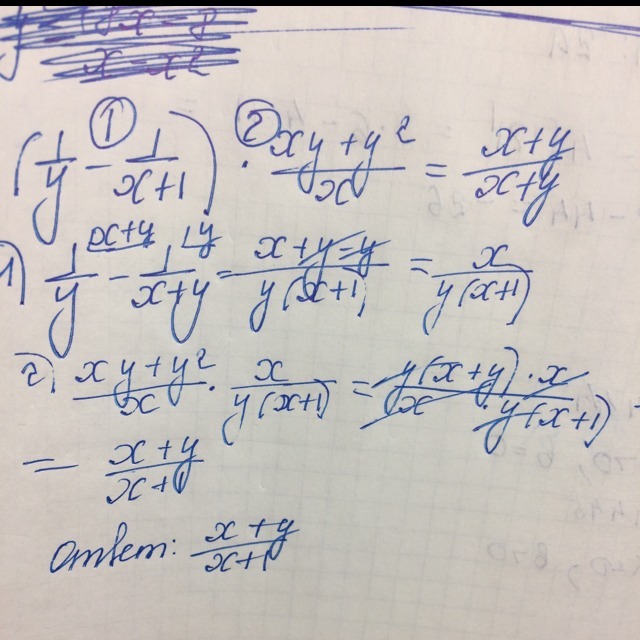 (1/y - 1/(x+1)) · (xy+y²)/x = (x+y)/(x+y)
1) 1/y - 1/(x+y) = (x+y-y)/(y(x+1)) = x/(y(x+1))
2) (xy+y²)/x · x/(y(x+1)) = (y(x+y)·x)/(x·y(x+1)) =
= (x+y)/(x+1)
Ответ: (x+y)/(x+1)